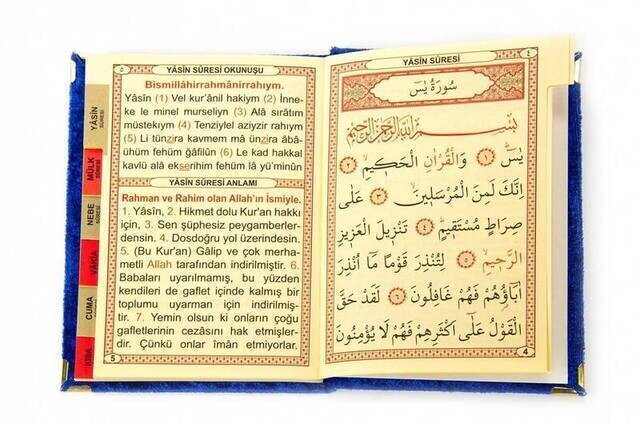 YÂSİN SÛRESİ OKUNUŞU
Bismillâhirrahmânirrahıym.
Yâsîn (1) Vel kur'ânil hakiym (2) İnne-
ke le minel murseliyn (3) Alâ sırâtım
müstekıym (4) Tenziylel aziyzir rahıym
(5) Li tünzira kavmem mâ ünzira âbâ-
ühüm fehüm ğâfilûn (6) Le kad hakkal
kavlü alâ ekserihim fehüm lâ yü'minûn
YÂSİN SÛRESİ ANLAMI
Rahman ve Rahim olan Allah'ın İsmiyle.
1. Yâsîn, 2. Hikmet dolu Kur'an hakkı
için, 3. Sen şüphesiz peygamberler-
densin. 4. Dosdoğru yol üzerindesin.
5. (Bu Kur'an) Gâlip ve çok merha-
metli Allah tarafından indirilmiştir. 6.
Babaları uyarılmamış, bu yüzden
kendileri de gaflet içinde kalmış bir
toplumu uyarman için indirilmiş-
tir. 7. Yemin olsun ki onların çoğu
gafletlerinin cezasını hak etmişler-
dir. Çünkü onlar îman etmiyorlar.
5
YÂSİN
SÛRESİ
MÜLK
SÛRESİ
NEBE
SÛRESİ
VÂKIA
CUMA
KISA
YÂSİN SÛRESİ
٤
سُورَةُ يٰسٓ
بِسْمِ اللّٰهِ الرَّحْمٰنِ الرَّحِيمِ
يٰسٓ ﴿١﴾ وَالْقُرْاٰنِ الْحَكٖيمِ ﴿٢﴾
اِنَّكَ لَمِنَ الْمُرْسَلٖينَ ﴿٣﴾ عَلٰى
صِرَاطٍ مُسْتَقٖيمٍ ﴿٤﴾ تَنْزٖيلَ الْعَزٖيزِ
الرَّحٖيمِ ﴿٥﴾ لِتُنْذِرَ قَوْمًا مَٓا اُنْذِرَ
اٰبَٓاؤُ۬هُمْ فَهُمْ غَافِلُونَ ﴿٦﴾ لَقَدْ حَقَّ
الْقَوْلُ عَلٰٓى اَكْثَرِهِمْ فَهُمْ لَا يُؤْمِنُونَ
4